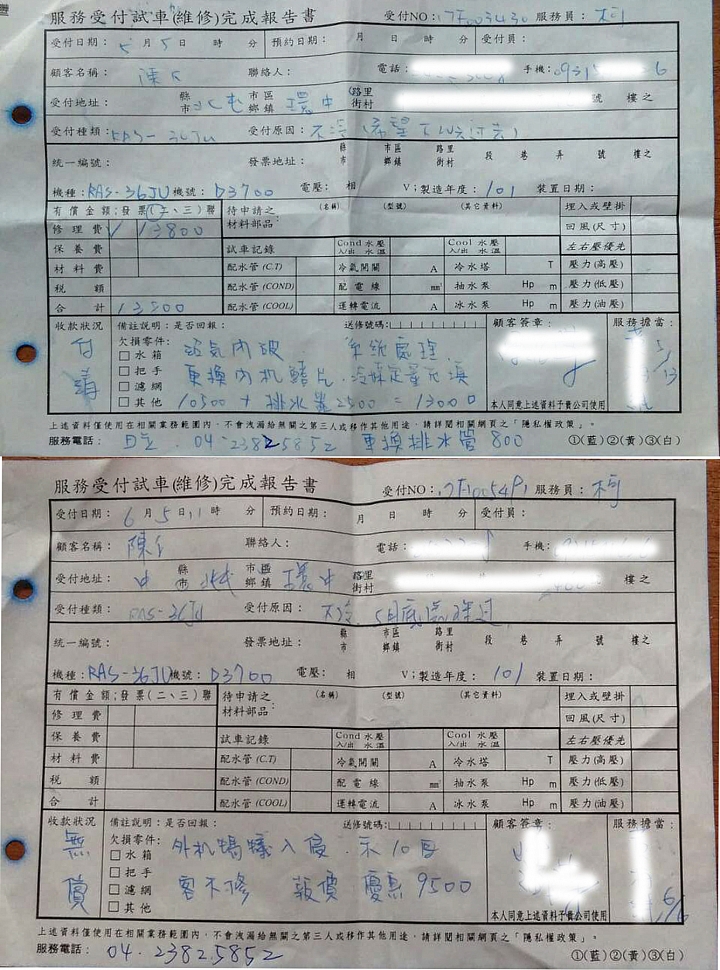 服務受付試車(維修)完成報告書 受付NO: 服務員: 柯
受付日期: 5月5日 時 分 預約日期: 月 日 時 分 受付員:
顧客名稱: 陳 聯絡人: 電話: 手機:
受付地址: 縣市 北屯 市區鄉鎮 環中 路里街村 號 樓之
受付種類: RAS-36JU 受付原因: 不冷
統一編號: 發票地址: 縣市 市區鄉鎮 路里街村 段 巷 弄 號 樓之
機種: RAS-36JU 機號: D3700 電壓: 相 V;製造年度: 101 裝置日期:
有償金額;發票(二、三)聯 待申請之材料部品: (名稱) (型號) (其它資料) 埋入或壁掛
修理費 13800 回風(尺寸)
保養費 試車記錄 Cond 水壓 入/出 水溫 Cool 水壓 入/出 水溫 左右壓優先
材料費 配水管(C.T) 冷氣開關 A 冷水塔 T 壓力(高壓)
稅額 配水管(COND) 配電線 mm² 抽水泵 Hp m 壓力(低壓)
合計 13800 配水管(COOL) 運轉電流 A 冰水泵 Hp m 壓力(油壓)
收款狀況 備註說明:是否回報: 送修號碼: 顧客簽章: 服務擔當:
付 欠損零件:
□水箱 冷氣內破 系統處理
□把手 更換內机鰭片.冷媒定量充填
□濾網
□其他 10500 + 排水器2500 = 13000 本人同意上述資料予貴公司使用
上述資料僅使用在相關業務範圍內,不會洩漏給無關之第三人或移作其他用途,請詳閱相關網頁之「隱私權政策」。
服務電話: 日立 04-23825852 更換排水管 800 ①(藍)②(黃)③(白)
服務受付試車(維修)完成報告書 受付NO: 服務員: 柯
受付日期: 6月5日11時 分 預約日期: 月 日 時 分 受付員:
顧客名稱: 陳 聯絡人: 電話: 手機:
受付地址: 中 縣市 北屯 市區鄉鎮 環中 路里街村 樓之
受付種類: RAS-36JU 受付原因: 不冷 5月底處理過
統一編號: 發票地址: 縣市 市區鄉鎮 路里街村 段 巷 弄 號 樓之
機種: RAS-36JU 機號: D3700 電壓: 相 V;製造年度: 101 裝置日期:
有償金額;發票(二、三)聯 待申請之材料部品: (名稱) (型號) (其它資料) 埋入或壁掛
修理費 回風(尺寸)
保養費 試車記錄 Cond 水壓 入/出 水溫 Cool 水壓 入/出 水溫 左右壓優先
材料費 配水管(C.T) 冷氣開關 A 冷水塔 T 壓力(高壓)
稅額 配水管(COND) 配電線 mm² 抽水泵 Hp m 壓力(低壓)
合計 配水管(COOL) 運轉電流 A 冰水泵 Hp m 壓力(油壓)
收款狀況 備註說明:是否回報: 送修號碼: 顧客簽章: 服務擔當:
無償 欠損零件:
□水箱 外机螞蟻入侵
□把手
□濾網 客不修 報價 優惠 9500
□其他 本人同意上述資料予貴公司使用 6/6
上述資料僅使用在相關業務範圍內,不會洩漏給無關之第三人或移作其他用途,請詳閱相關網頁之「隱私權政策」。
服務電話: 04-23825852 ①(藍)②(黃)③(白)